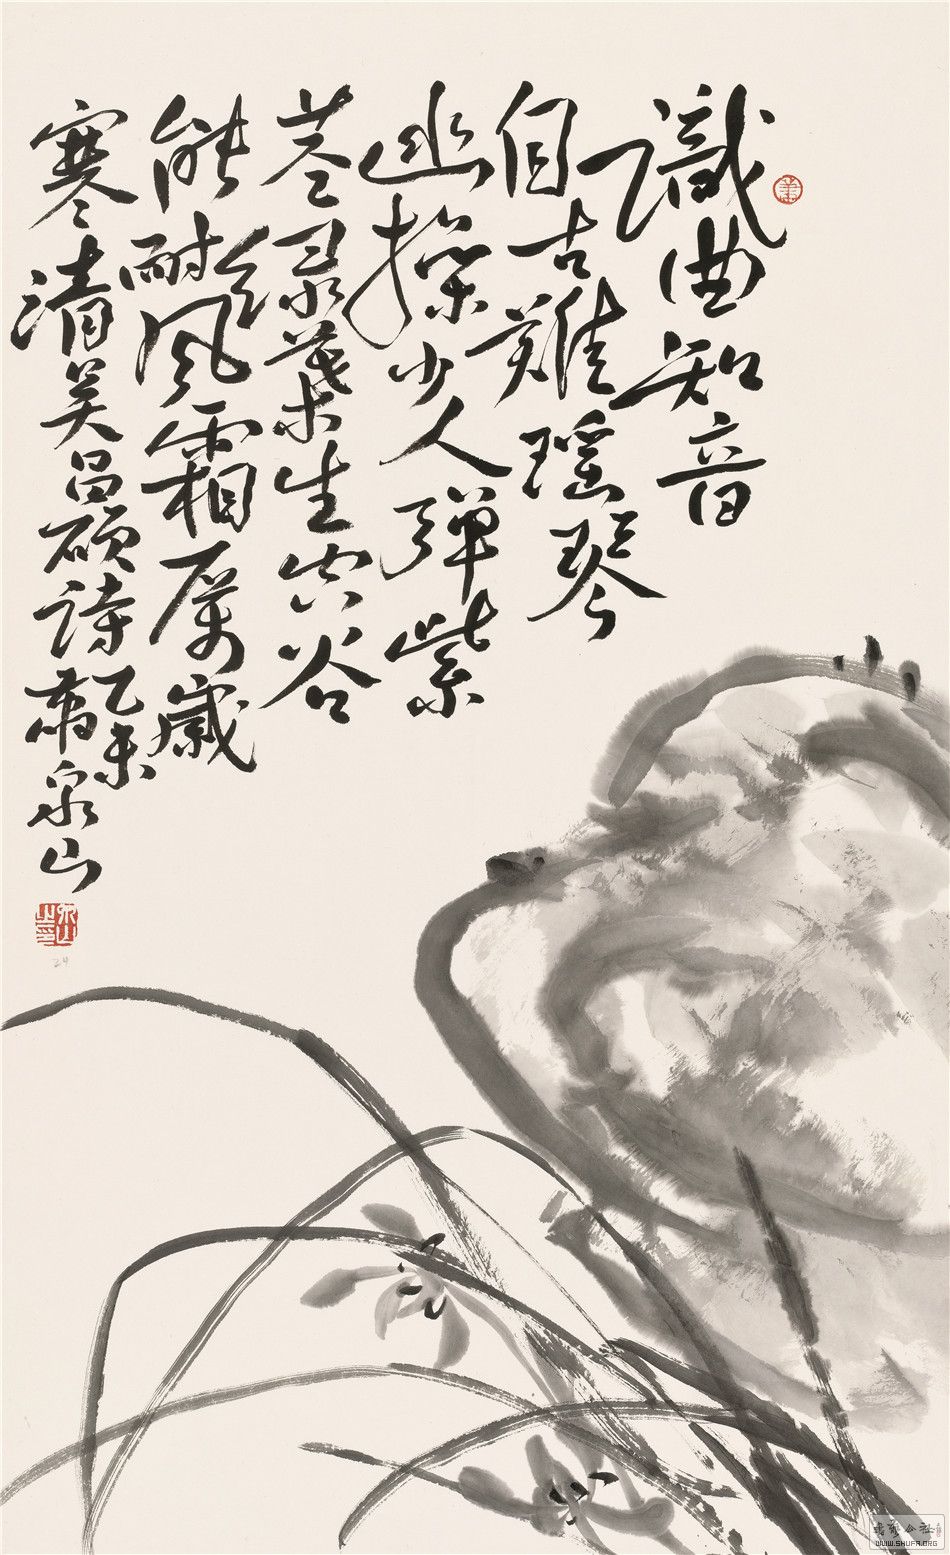 識曲知音
自古難瑶琴
幽操少人彈紫
茎綠葉生空谷
能耐風霜厲歲
寒清吴昌碩詩
乙未
萧泉山
泉山之印
24
公社
WWW.SHUFA.ORG